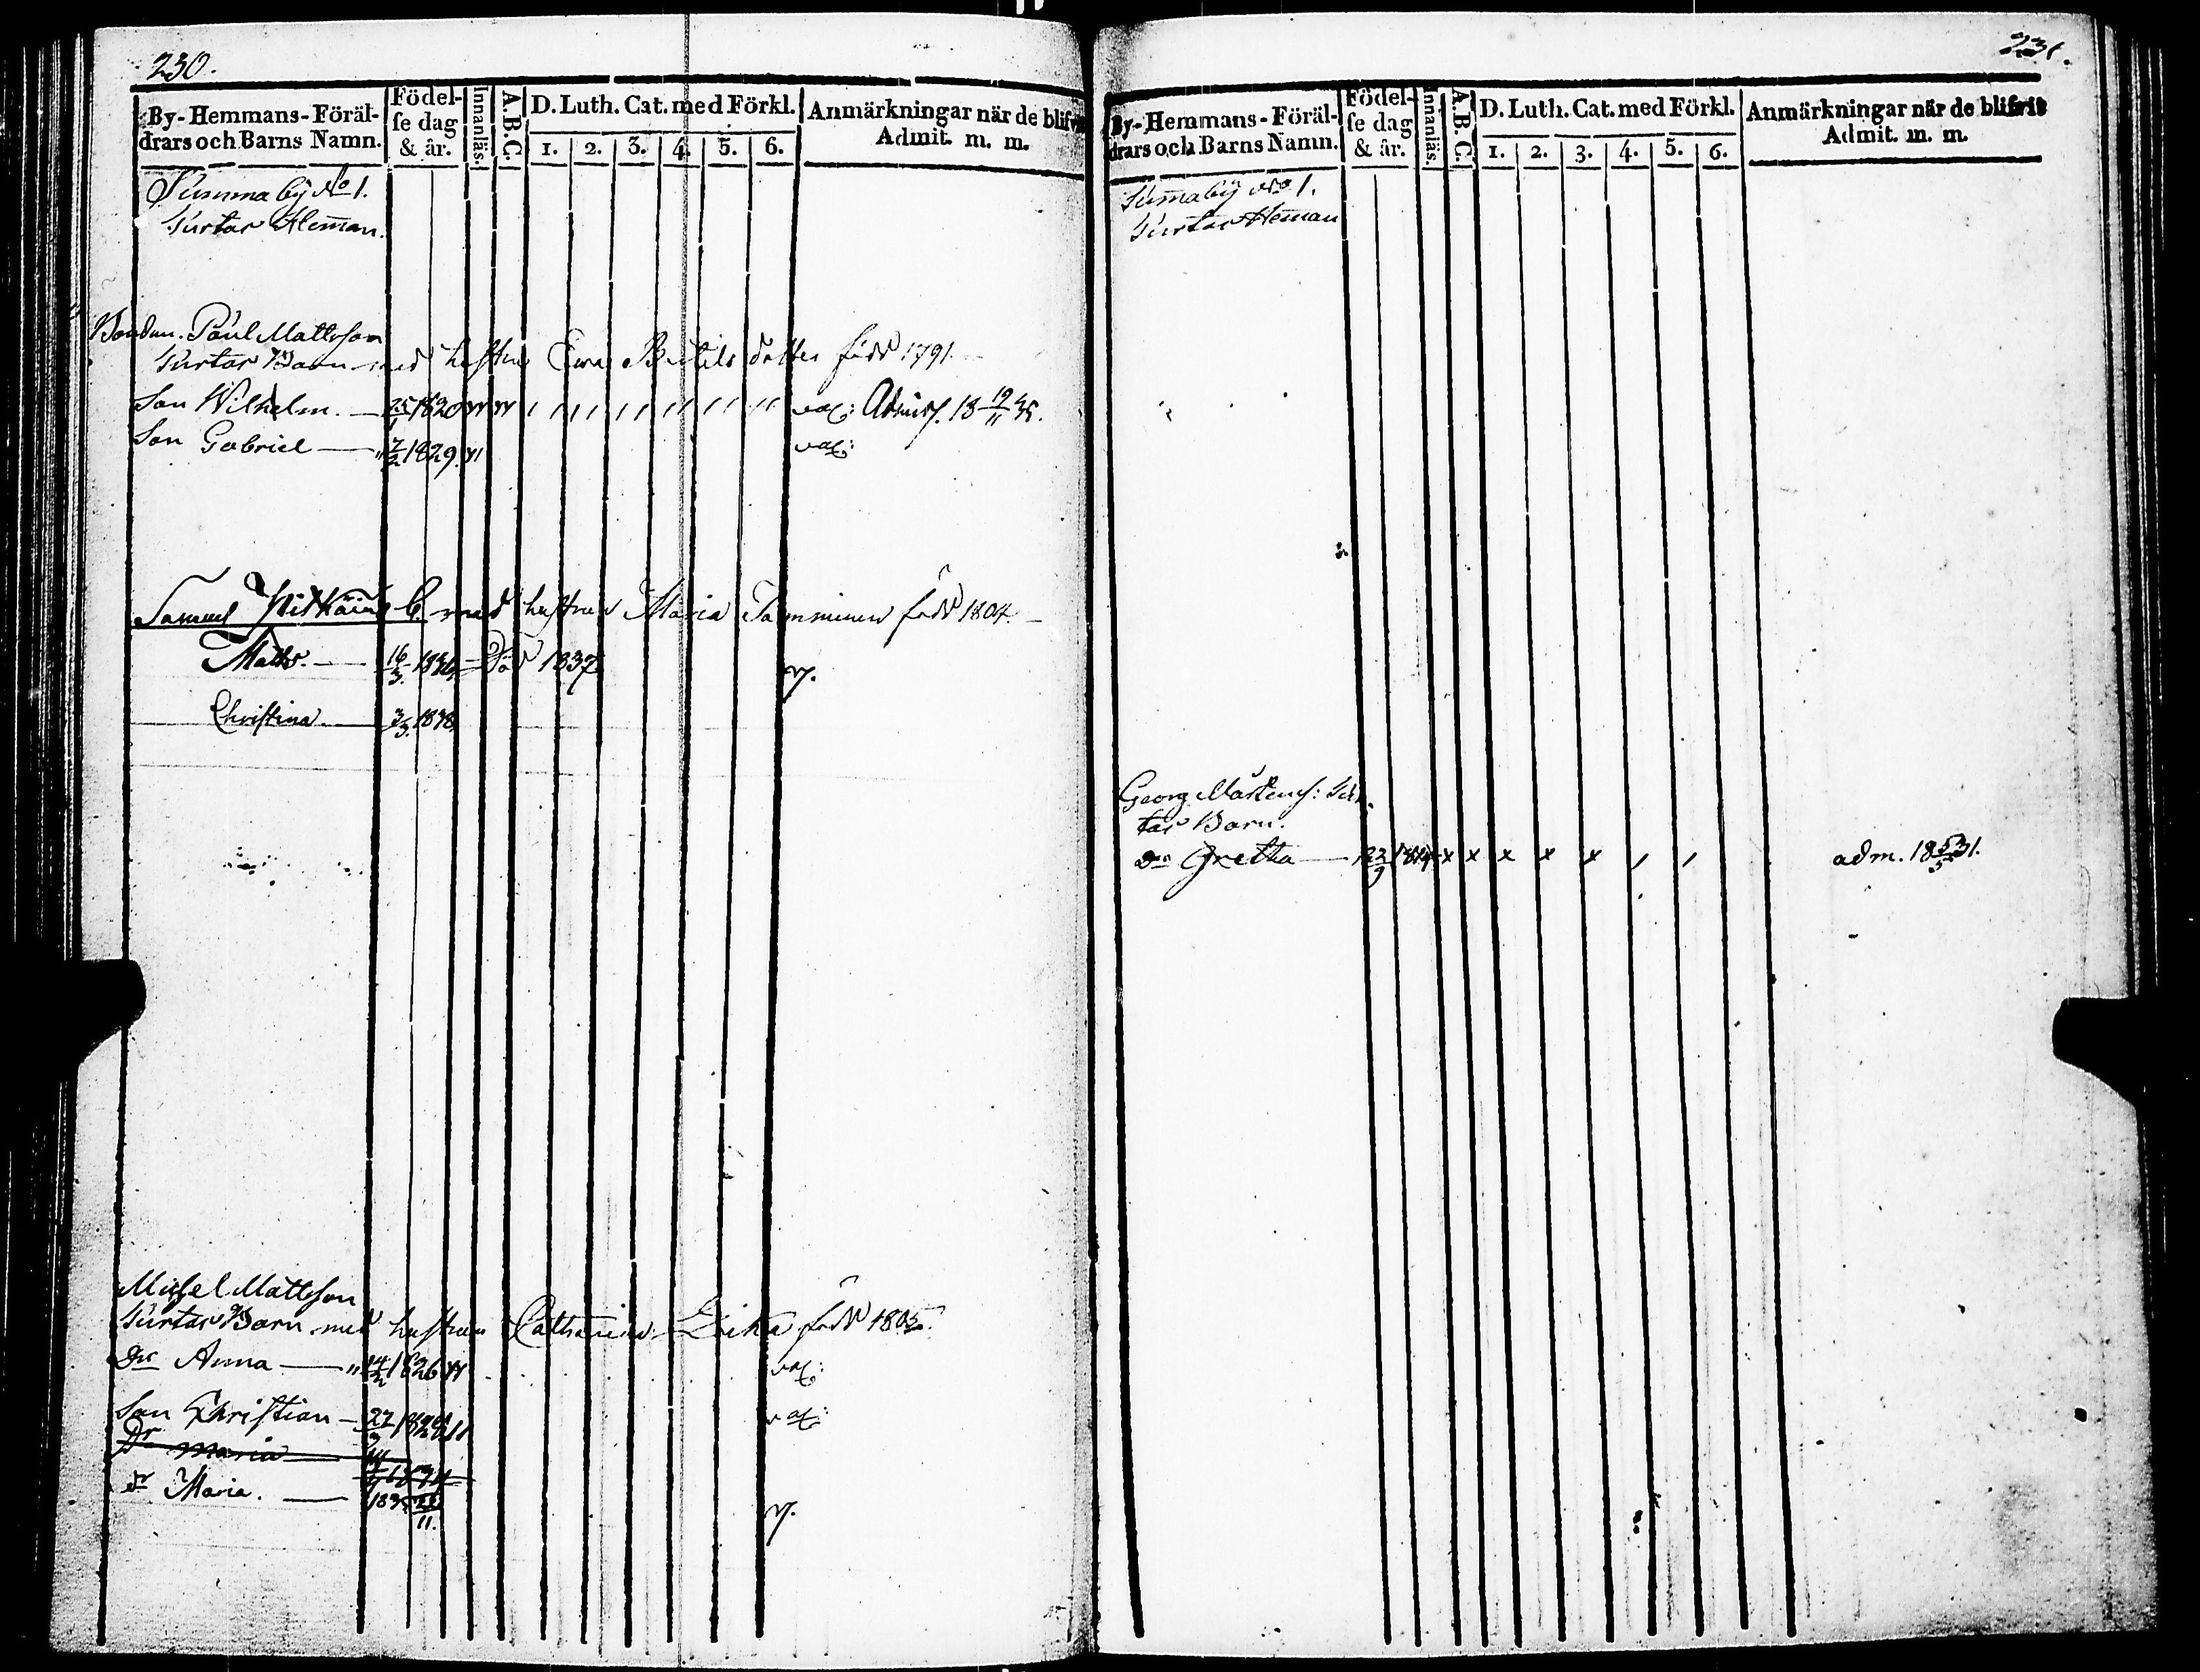 230.
By-Hemmans-Föräl-
drars och Barns Namn.
Födel-
se dag
& år.
Innanläs.
A.B.C.
D. Luth. Cat. med Förkl.
1. 2. 3. 4. 5. 6.
Anmärkningar när de blifvit
Admit. m. m.
Summa by No 1.
Surtar Hem̄an.
Bonden. Paul Mattsson
Surtas Barn med hustru Ewa Bertils dotter född 1791.
Son Wilhelm. — 25/1 1820 vac: Admiss. 18 19/11 35.
Son Gabriel — 7/2 1829. vac:
Samuel Pitkäin B. med hustrun Maria Tamminen född 1804.
Matts. — 16/3. 1836 Död 1837 v.
Christina. — 3/3. 1838
Michel Mattsson
Surtas Barn med hustrun Catharina född 1805.
Dr Anna — 14/2 1826 vac:
Son Christian — 27/9 vac:
Dr Maria
dr Maria. — 1835 22/11. v.
231.
By-Hemmans-Föräl-
drars och Barns Namn.
Födel-
se dag
& år.
Innanläs.
A.B.C.
D. Luth. Cat. med Förkl.
1. 2. 3. 4. 5. 6.
Anmärkningar när de blifvit
Admit. m. m.
Sum̄a by No 1.
Surtas Hem̄an
Georg Mårtens: Sur-
tas Barn.
Dr Gretha — 22/9 1814 x x x x x adm. 18 31.